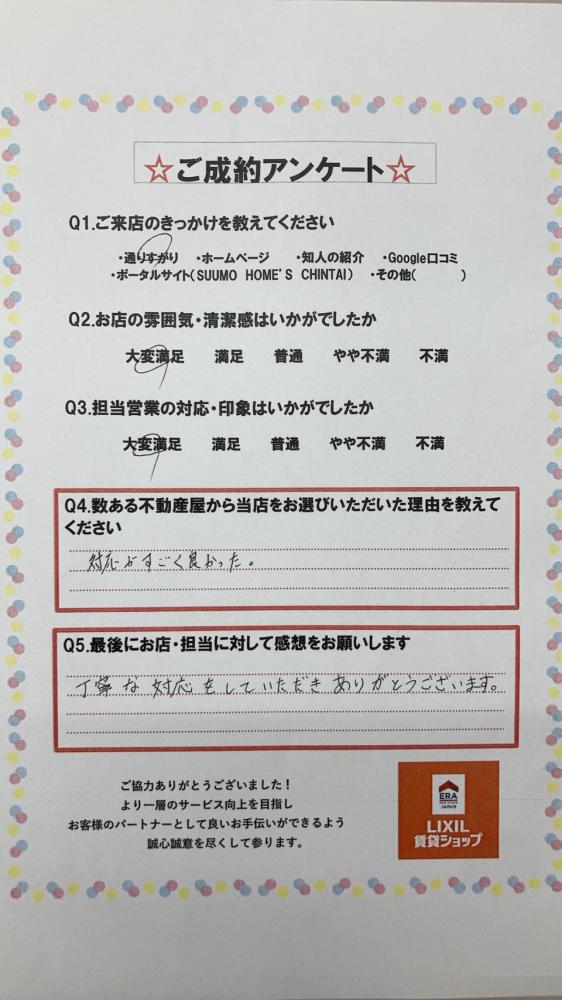 ☆ご成約アンケート☆
Q1.ご来店のきっかけを教えてください
・通りすがり ・ホームページ ・知人の紹介 ・Google口コミ
・ポータルサイト(SUUMO HOME'S CHINTAI) ・その他( )
Q2.お店の雰囲気・清潔感はいかがでしたか
大変満足 満足 普通 やや不満 不満
Q3.担当営業の対応・印象はいかがでしたか
大変満足 満足 普通 やや不満 不満
Q4.数ある不動産屋から当店をお選びいただいた理由を教えて
ください
対応がすごく良かった。
Q5.最後にお店・担当に対して感想をお願いします
丁寧な対応をしていただきありがとうございます。
ご協力ありがとうございました！
より一層のサービス向上を目指し
お客様のパートナーとして良いお手伝いができるよう
誠心誠意を尽くして参ります。
ERA
JAPAN
LIXIL
賃貸ショップ